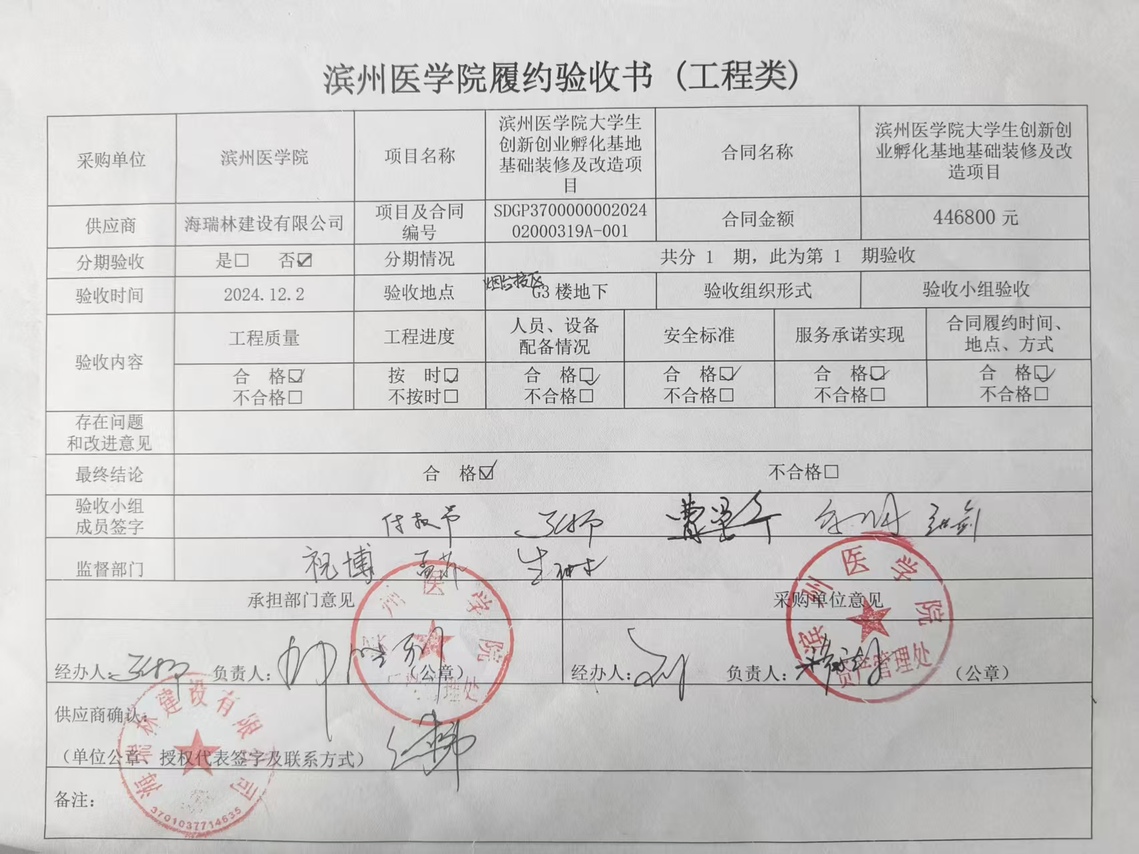 滨州医学院履约验收书（工程类）
采购单位 滨州医学院 项目名称 滨州医学院大学生创新创业孵化基地基础装修及改造项目 合同名称 滨州医学院大学生创新创业孵化基地基础装修及改造项目
供应商 海瑞林建设有限公司 项目及合同编号 SDGP370000000202402000319A-001 合同金额 446800 元
分期验收 是☐ 否☑ 分期情况 共分 1 期，此为第 1 期验收
验收时间 2024.12.2 验收地点 烟台校区G3 楼地下 验收组织形式 验收小组验收
验收内容 工程质量 工程进度 人员、设备配备情况 安全标准 服务承诺实现 合同履约时间、地点、方式
合 格☑ 按 时☑ 合 格☑ 合 格☑ 合 格☑ 合 格☑
不合格☐ 不按时☐ 不合格☐ 不合格☐ 不合格☐ 不合格☐
存在问题和改进意见
最终结论 合 格☑ 不合格☐
验收小组成员签字
监督部门 祝博
承担部门意见 采购单位意见
经办人： 负责人： （公章） 经办人： 负责人： （公章）
滨州医学院
滨州医学院
资产管理处
供应商确认：
（单位公章、授权代表签字及联系方式）
海瑞林建设有限公司
3701037714635
备注：